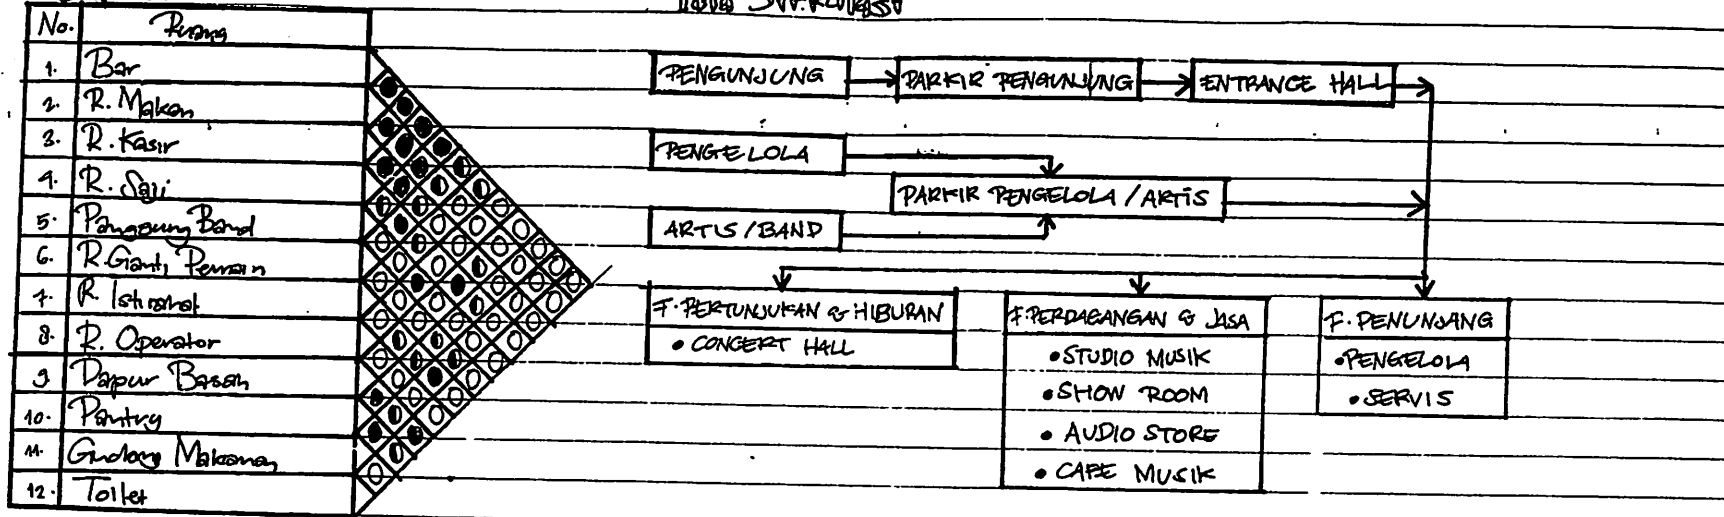 No. Ruang
1. Bar
2. R. Makan
3. R. Kasir
4. R. Saji
5. Panggung Band
6. R. Ganti Pemain
7. R. Istirahat
8. R. Operator
9. Dapur Basah
10. Pantry
11. Gudang Makanan
12. Toilet
PENGUNJUNG
PARKIR PENGUNJUNG
ENTRANCE HALL
PENGELOLA
PARKIR PENGELOLA / ARTIS
ARTIS / BAND
F. PERTUNJUKAN & HIBURAN
• CONCERT HALL
F. PERDAGANGAN & JASA
• STUDIO MUSIK
• SHOW ROOM
• AUDIO STORE
• CAFE MUSIK
F. PENUNJANG
• PENGELOLA
• SERVIS